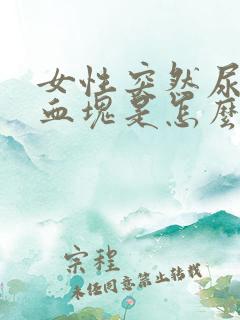 女性突然尿
血块是怎麽
宋程
未经同意禁止转载